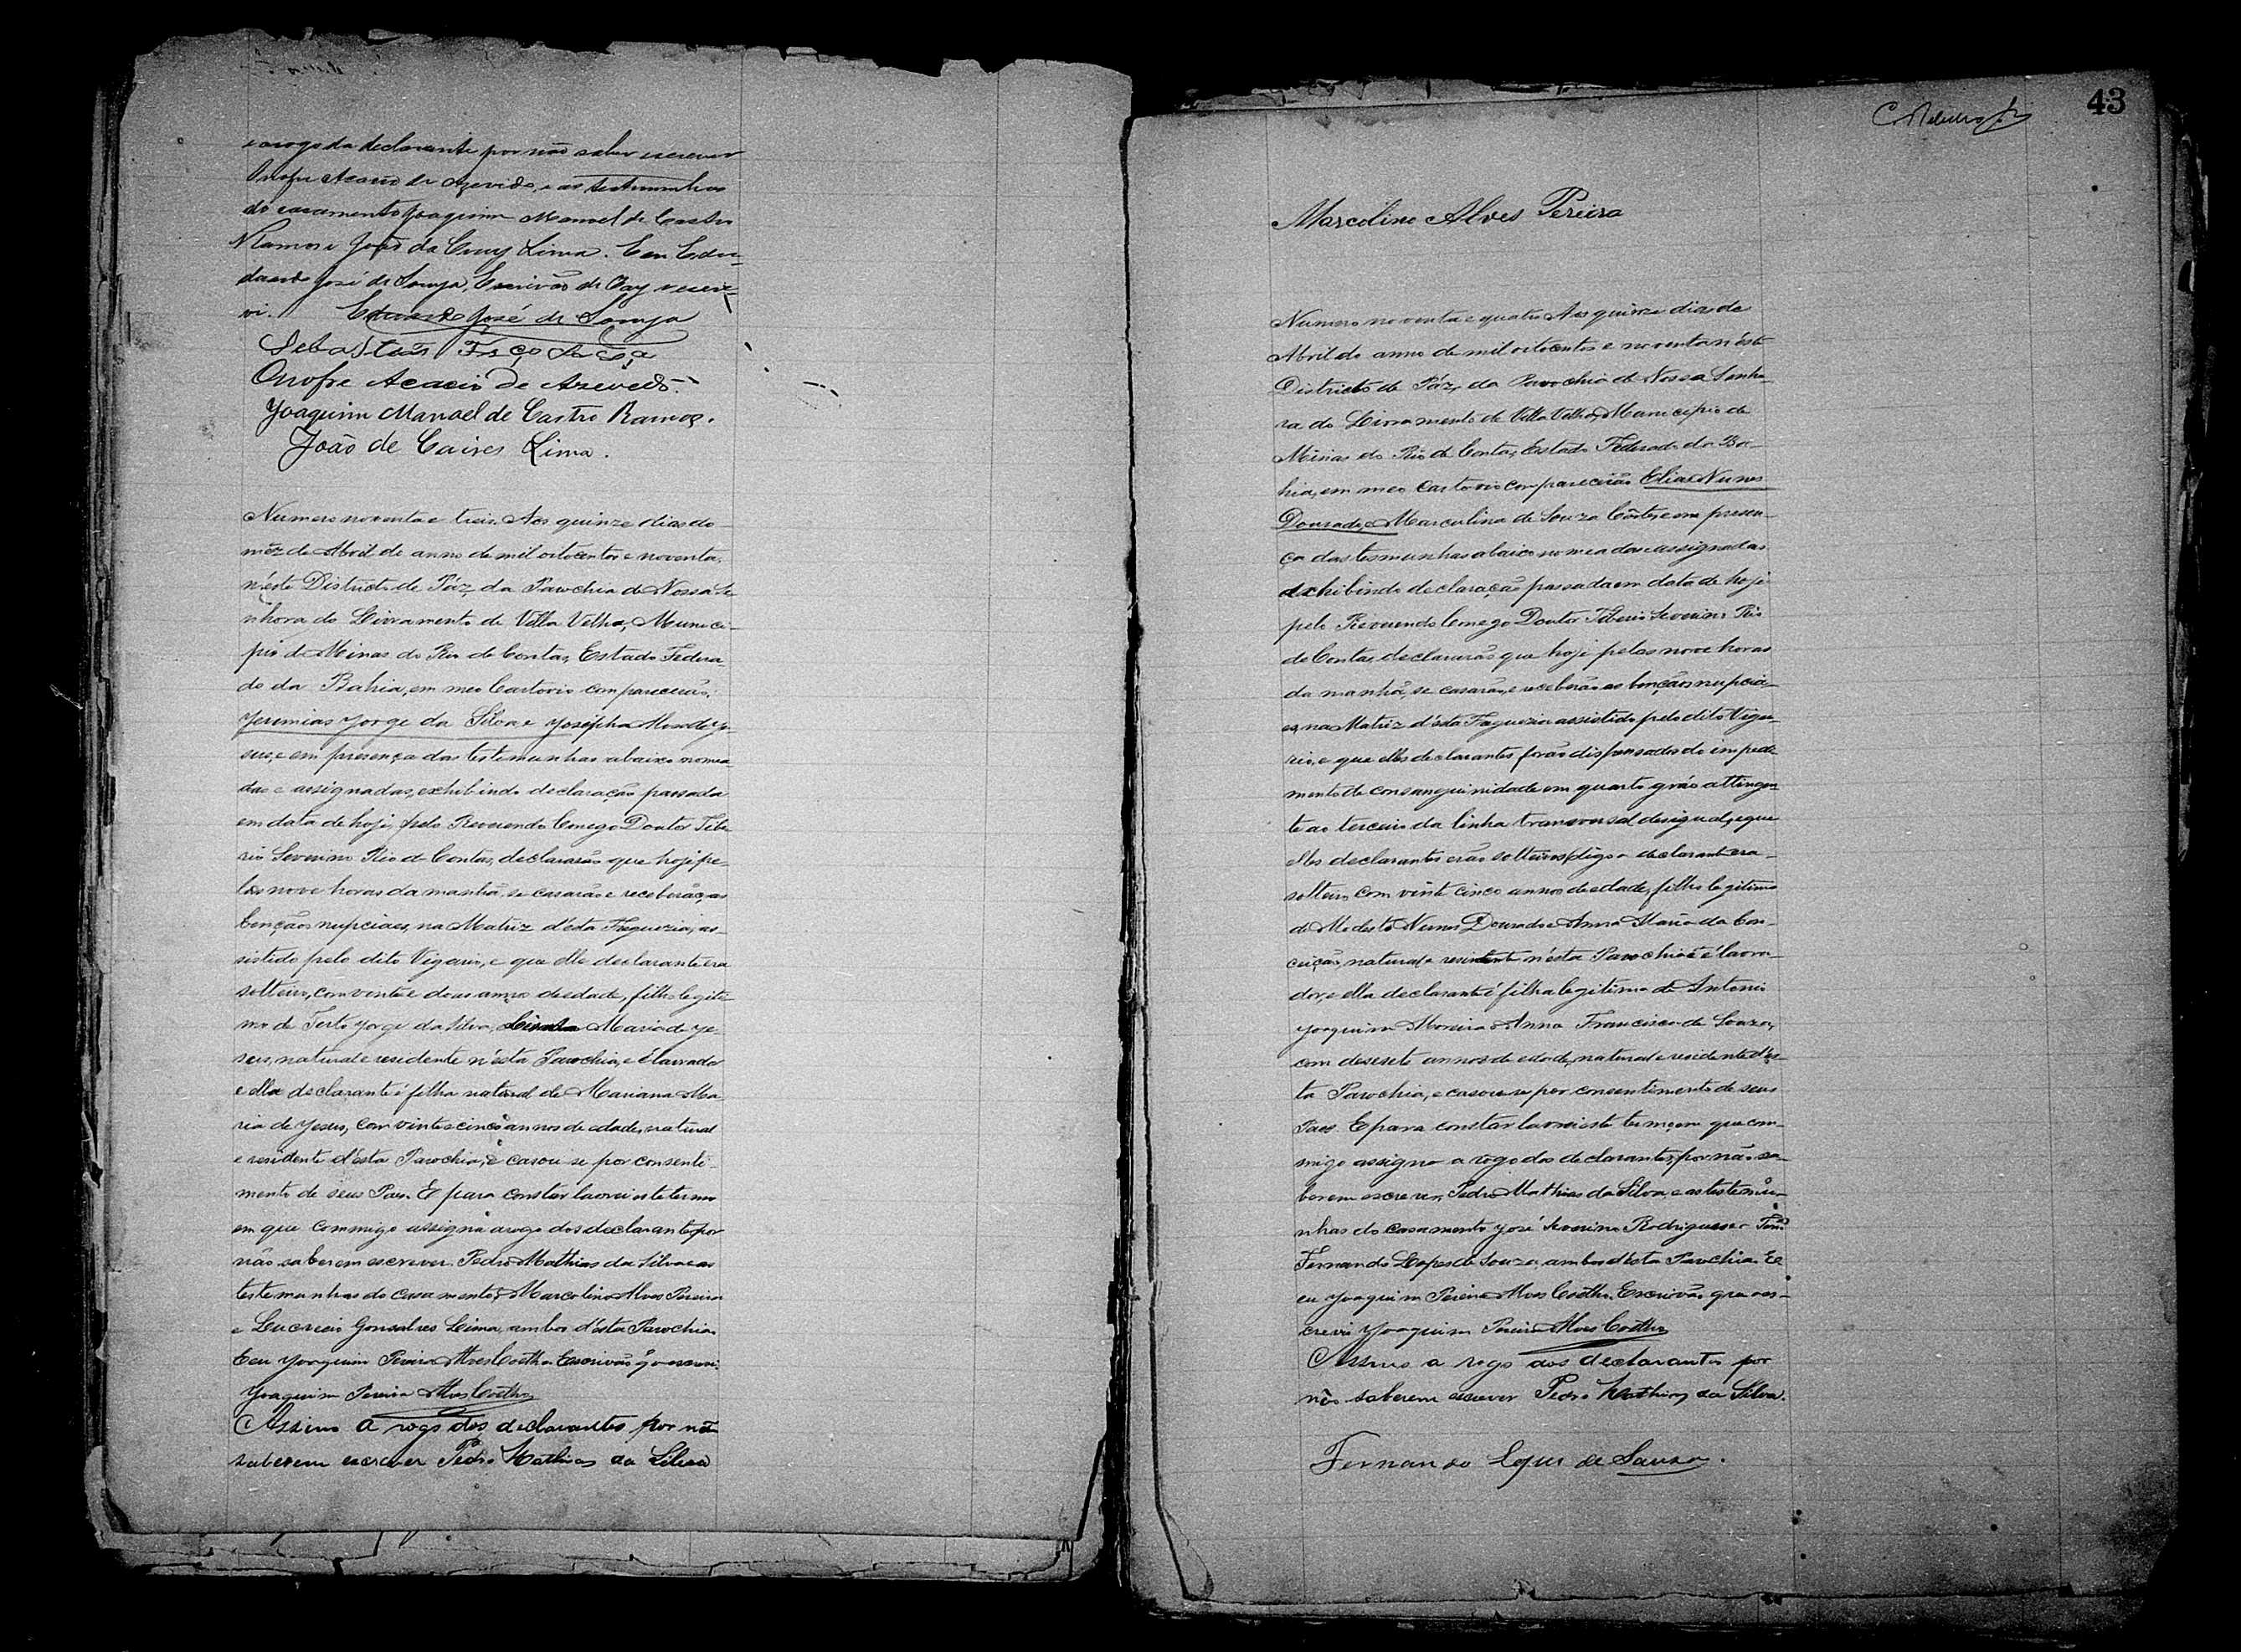 a rogo da declarante por não saber escrever
Onofre Acacio de Azevedo, e as testemunhas
do casamento Joaquim Manoel de Castro
Ramos e João da Cruz Lima. E eu Edu-
dardo José de Souza, Escrivão de Paz escre-
vi. Eduardo José de Souza
Sebastião
Onofre Acacio de Azevedo.
Joaquim Manoel de Castro Ramos.
João de Caires Lima.
Numero noventa e treis. Aos quinze dias do
mêz de Abril do anno de mil oitocentos e noventa,
n'éste Districto de Páz da Parochia de Nossa Se-
nhora do Livramento de Villa Velha, Munici-
pio de Minas do Rio de Contas, Estado Federa-
do da Bahia, em meo Cartorio comparecerão,
Jeremias Jorge da Silva e Josépha Maria de Je-
sus, e em presença das testemunhas abaixo nomea-
das e assignadas, exhibindo declaração passada
em data de hoje, pelo Reverendo Conego Doutor Tibe-
rio Severino Rio de Contas, declararão que hoje pe-
las nove horas da manhã, se casarão e receberão, as
bençãos nupciaes, na Matriz d'ésta Freguezia, as-
sistido pelo dito Vigario, e que elle declarante era
solteiro, com vinte e dous annos de edade, filho legiti-
mo de Terto Jorge da Silva, Maria de Je-
sus, natural e residente n'ésta Parochia, e é lavrador
e ella declarante é filha natural de Mariana Ma
ria de Jesus, com vinte e cinco annos de edade, natural
e residente d'ésta Parochia, e casou se por consenti-
mento de seus Paes. E para constar lavrei este termo
em que commigo assigna a rogo dos declarantes, por
não saberem escrever. Pedro Mathias da Silva e as
testemunhas do casamento, Marcolino Alves Pereira
e Lucrecio Gonsalves Lima, ambos d'ésta Parochia.
E eu Joaquim Pereira Alves Coêlho Escrivão q' o escrevi.
Joaquim Pereira Alves Coêlho
Assino a rogo dos declarantes por não
saberem escrever Pedro Mathias da Silva
43
Marcolino Alves Pereira
Numero noventa e quatro Aos quinze dias de
Abril do anno de mil oitocentos e noventa n'éste
Districto de Páz, da Parochia de Nossa Senho-
ra do Livramento de Villa Velha, Municipio de
Minas do Rio de Contas, Estado Federado da Ba-
hia, em meo Cartorio comparecerão Elias Nunes
Dourado, e Marculina de Souza Côrtes, e em presen-
ça das tesmunhas abaico nomeadas e assignadas
exhibindo declaração passada em data de hoje
pelo Reverendo Conego Doutor Tiberio Severino Rio
de Contas, declararão que hoje pelas nove horas
da manhã, se casarão, e receberão as bençãos nupcia-
es, na Matriz d'ésta Freguezia assistido pelo dito Viga-
rio, e que elles declarantes forão dispensados do impede-
mento de consanguinidade em quarto gráo attingen
te ao terceiro da linha transversal desigual, e que
elles declarantes erão solteiros, digo o declarante era
solteiro com vinte cinco annos de edade, filho legitimo
de Modesto Nunes Dourado e Anna Maria da Con-
ceição, natural e residente n'ésta Parochia e é lavra-
dor, e ella declarante é filha legitima de Antonio
Joaquim Moreira e Anna Francisca de Souza,
com desesete annos de edade, natural e residente d'es-
ta Parochia, e casou se por consentimento de seus
Paes. E para constar lavrei este termo em que com-
migo assigna a rogo dos declarantes, por não sa-
berem escrever, Pedro Mathias da Silva, e as testemu-
nhas do casamento José Severino Rodrigues e
Fernando Lopes de Souza, ambos d'ésta Parochia. E
eu Joaquim Pereira Alves Coêlho, Escrivão que o es-
crevi. Joaquim Pereira Alves Coêlho
Assino a rogo dos declarantes por
não saberem escrever Pedro Mathias da Silva.
Fernando Lopes de Souza.